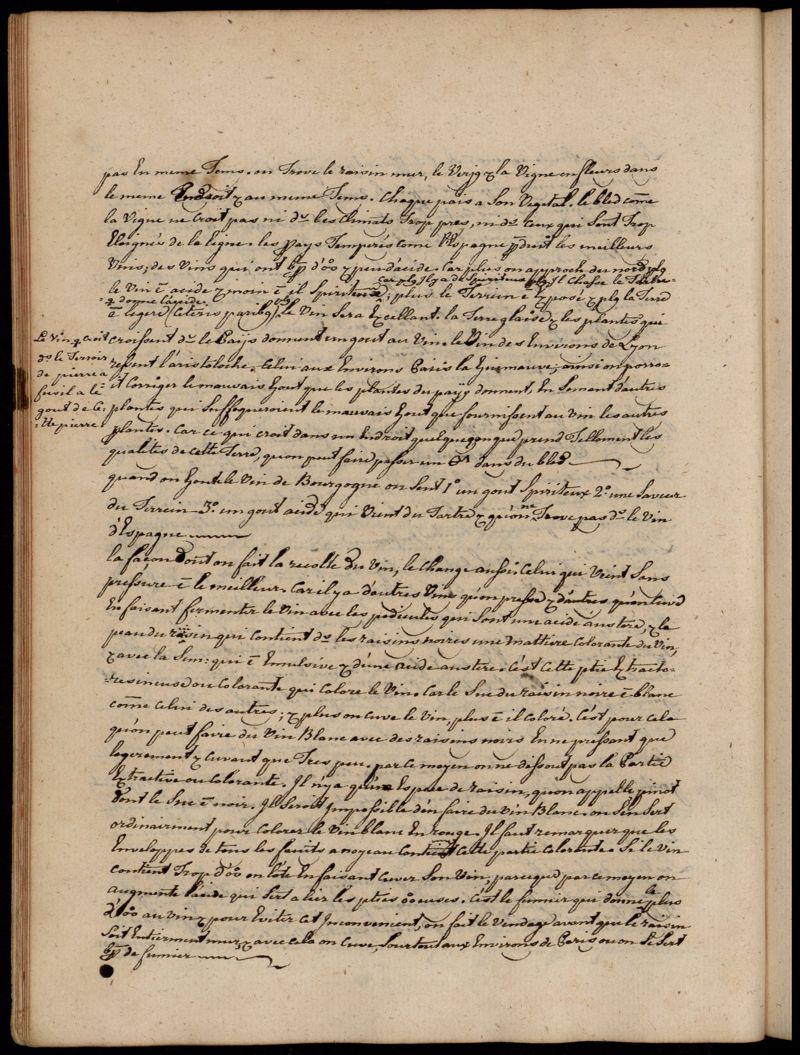 pas En meme Tems. on Trove le raisin mur, le Verjy & la Vigne en fleurs dans
le meme Endroit & au meme Tems. Chaque païs a Son Vegetal. le bled come
la Vigne ne Croit pas ni ds les Climats Trop pres, ni ds ceux qui Sont Trop
Eloignés de la ligne. les Pays Temperés come l'Espagne pduit les meilleurs
Vins; des Vins qui ont bp d'oo & peu d'acide. Car plus on approch du nord plq
car plq Il y a de Spiritueux plq Il Chasse le Tartre
le Vin ē acide & moin ē il Spiritueux; plus le Terrein ē Exposé & plq la Terre
q donne l'acide.
ē legere (Cæteris paribq) le Vin Sera Excellent. la Terre glaise & les plantes qui
croissent ds le Païs donnent un gout au Vin. le Vin des Environs de Lyon
sent l'aristoloche. Celui aux Environs Paris la Guimauve; ainsi on porro-
it Corriger le mauvais Gout que les plantes du paÿs donnent, En Semant d'autres
plantes qui Suffoqueroient le mauvais Gout que fournissent au Vin les autres
plantes. Car ce qui croit dans un Endroit quelqueconque prend Tellement les
qualités de cette Terre, qu'on peut faire passer un dans du bled
Le Vin q croit
ds le Terroir
de pierre a
fusil a le
gout de Ce-
tte pierre
quand on Goute le Vin de Bourgogne on Sent 1° un gout Spiriteux 2° une Saveur
du Terrein 3° un gout acide qui Vient du Tartre & qu'on ne Trove pas ds le Vin
d'Espagne
la façon dont on fait la recolte du Vin, le Change aussi. Celui qui Vient Sans
pressure ē le meilleur. Car il y a d'autres Vins qu'on presse & d'autres qu'on
En faisant fermenter le Vin avec les pedicules qui Sont une acide austere, & la
peau du raisin qui Contient ds les raisins noires une mattiere Colorante du Vin,
& avec la Sem: qui ē Emulsive & d'une acide austere. C'est Cette ptie Extracto-
resineuse ou Colorante qui Colore le Vin. Car le Suc du raisin noire ē blanc
come Celui des autres; & plus on cuve le Vin, plus ē il Coloré. C'est pour cela
qu'on peut faire du Vin Blanc avec des raisins noirs En ne pressant que
legerement & cuvant que Tres peu. par ce moyen on ne dissout pas la Partie
Extractive ou Colorante. Il n'y a qu'une Espece de raisin, qu'on appelle pinot
dont le Suc ē noir. Il Seroit Impossible d'en faire du Vin Blanc. on S'en Sert
ordinairement pour Colorer le Vin blanc En rouge. Il faut remarquer que les
Enveloppes de tous les fruits a noyeau Contient Cette partie Colorante. Si le Vin
contient Trop d'oo on l'ôte En faisant Cuver Son Vin; parcequ par ce moyen on
augmente l'acide qui Sert a lier les pties ooeuses. C'est le fumier qui donne le plus
d'oo au Vin & pour Eviter Cet Inconvenient, on fait le Vindage avant que le raisin
Soit Entierment mur, & avec cela on Cuve, Sourtout aux Environs de Paris ou on Se Sert
bp de fumier